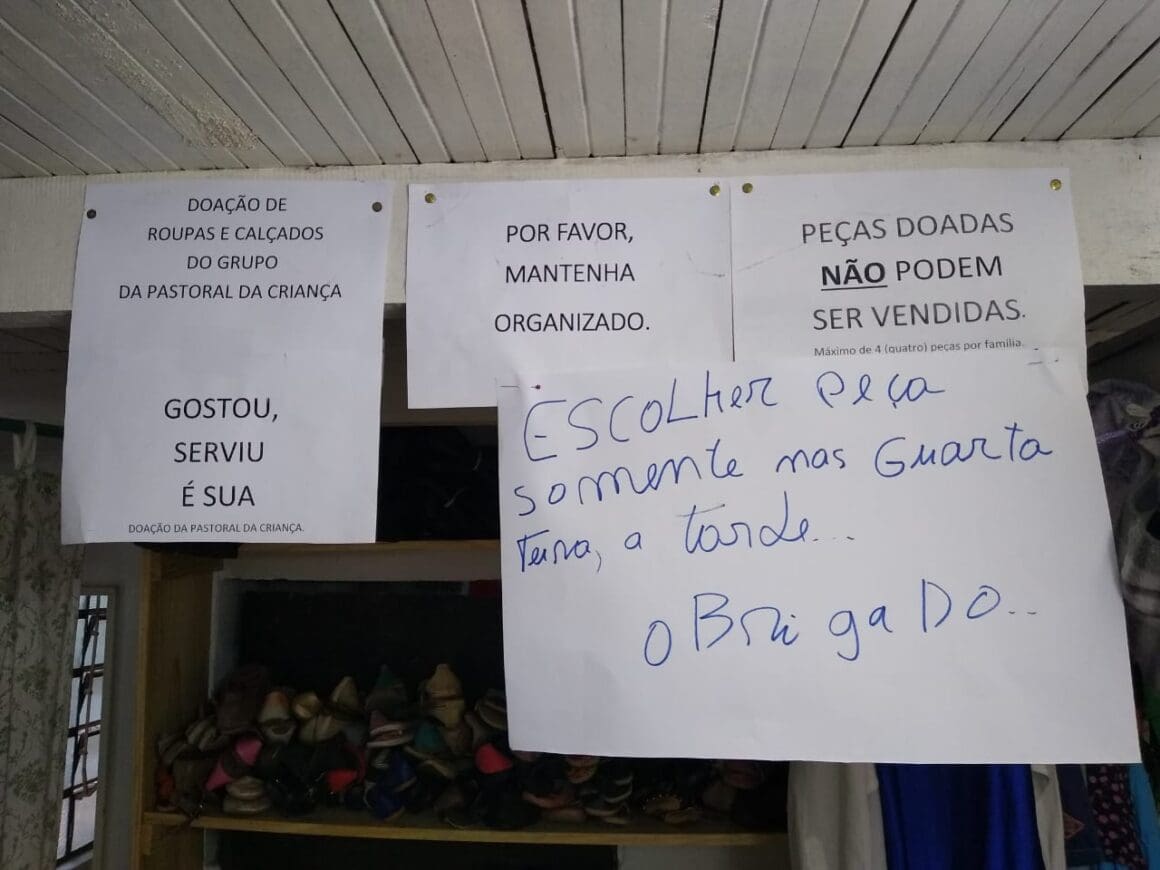 DOAÇÃO DE
ROUPAS E CALÇADOS
DO GRUPO
DA PASTORAL DA CRIANÇA
GOSTOU,
SERVIU
É SUA
DOAÇÃO DA PASTORAL DA CRIANÇA.
POR FAVOR,
MANTENHA
ORGANIZADO.
PEÇAS DOADAS
NÃO PODEM
SER VENDIDAS.
Máximo de 4 (quatro) peças por família.
ESCOLher peça
somente nas Guarta
Teira, a tarde...
oBrigaDo...